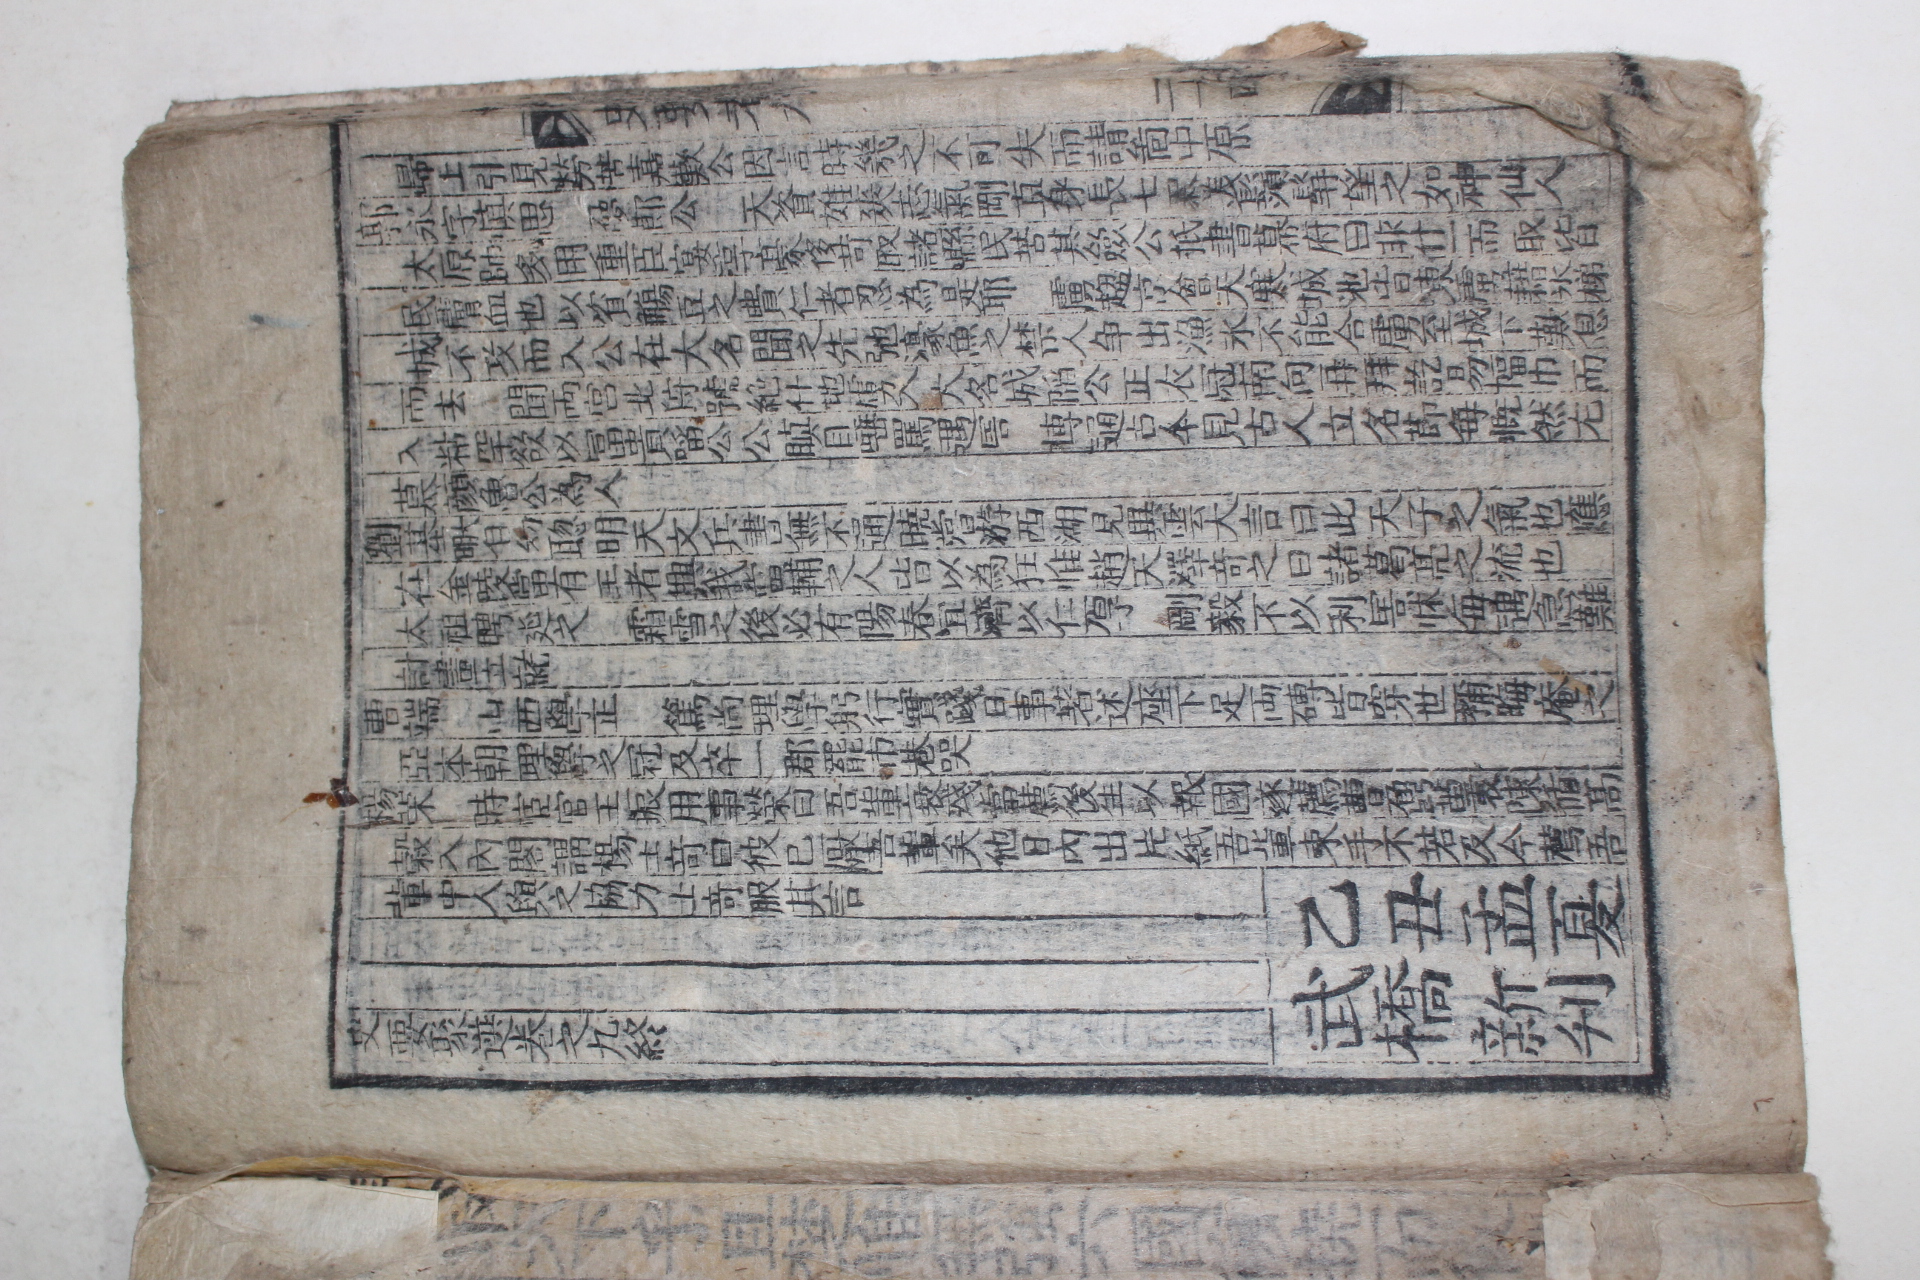 歸上引見勞苦嘉歎公因言時幾之不可失而請啚中原
郭永字愼思 天資雄爽志氣剛直身長七尺美鬚髯望之如神仙人
太原帥多用重臣宴享豪侈苛取諸縣民苦其斂公抵書幕府曰非什一而取皆
民膏血也以資觴豆之費仁者忍為是耶 虜趨京會天寒城池皆凍虜藉氷梯
城不攻而入公在大名聞之先弛濠魚之禁人争出漁氷不能合虜至城下歎息
而去 聞兩宮北狩號絶仆地虜入大名城陷公正衣冠南向再拜訖易幅巾而
入粘罕欲以富貴啗公公瞋目唾罵遇害 博通古今見古人立名節每慨然尤
慕顔魯公為人
劉基 幼聡明天文兵書無不通曉甞游西湖見異雲大言曰此天子之氣也應
在金陵當有王者興我當輔之人皆以為狂惟趙天澤奇之曰諸葛亮之流也
太祖聘延之 霜雪之後必有陽春宜濟以仁厚 剛毅不以利害怵每遇急難
計畫立就
曹端 山西學正 篤尚理學躬行實踐日事著述座下足両磚皆穿世稱晦庵之
亞本朝理學之冠及卒一郡罷市巷哭
楊宋 時宦官王振用事榮曰吾輩衰殘當薦後生以報國遂薦曹鼐苗衷陳循高
穀入內閣謂楊士奇曰彼已厭吾輩矣他日內出片紙吾輩束手不若及今薦吾
輩中人與之協力士奇服其言
史要聚選卷之九終
乙丑孟夏
武橋新刋
史要卷九
二十四